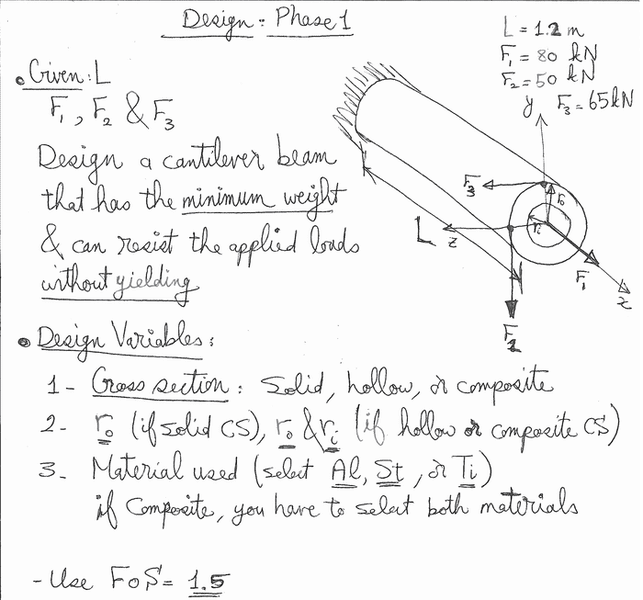 Design: Phase 1
L = 1.2 m
F₁ = 80 kN
F₂ = 50 kN
y F₃ = 65 kN
• Given: L
F₁, F₂ & F₃
Design a cantilever beam
that has the minimum weight
& can resist the applied loads
without yielding
F₃
r₀
rᵢ
L
z
F₁
x
F₂
• Design Variables:
1- Cross section: Solid, hollow, or composite
2- r₀ (if solid CS), r₀ & rᵢ (if hollow or composite CS)
3- Material used (select Al, St, or Ti)
if Composite, you have to select both materials
- Use FoS = 1.5